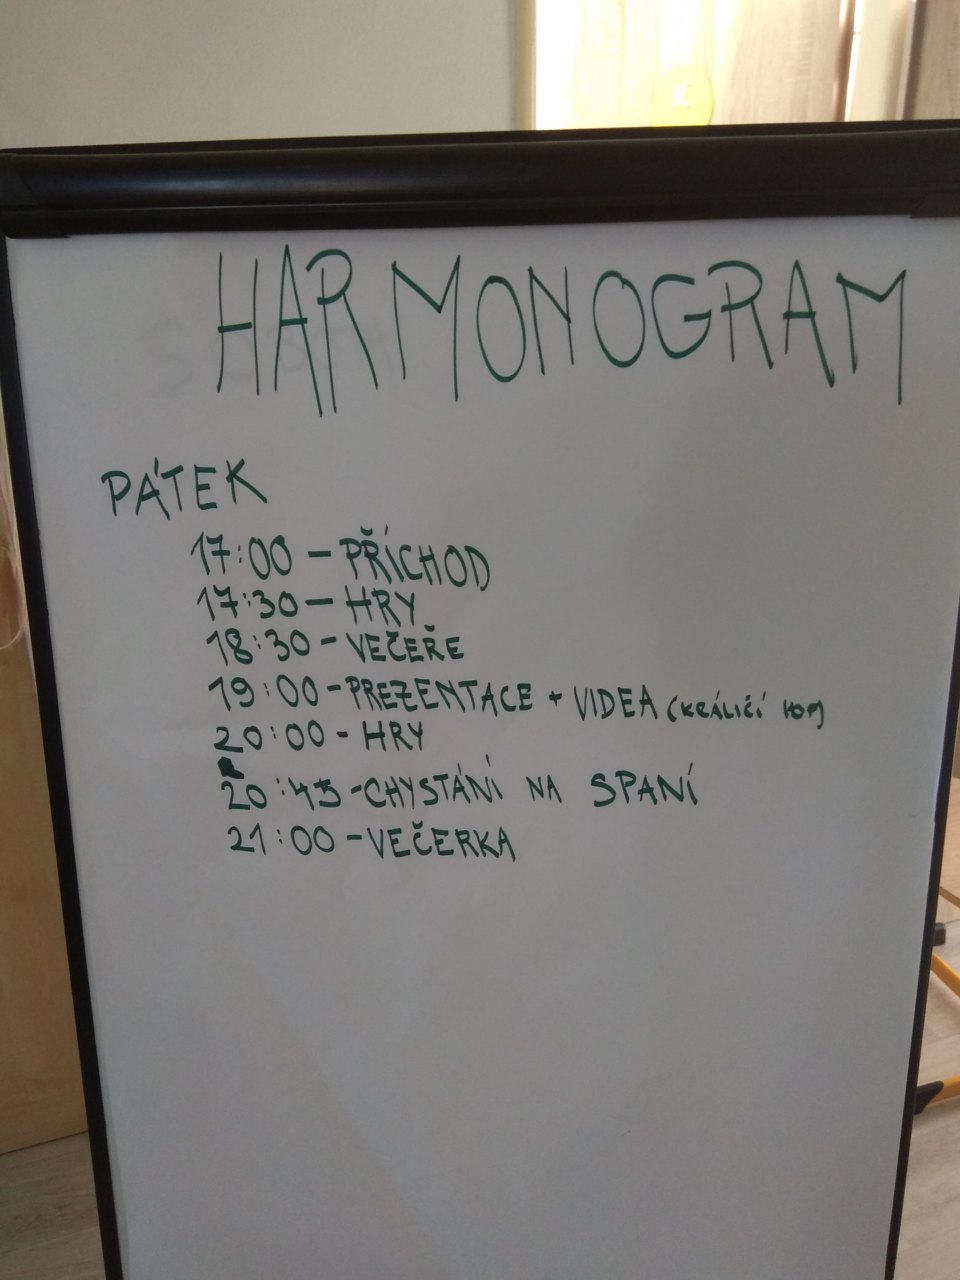 HARMONOGRAM
PÁTEK
17:00 - PŘÍCHOD
17:30 - HRY
18:30 - VEČEŘE
19:00 - PREZENTACE + VIDEA (KRÁLIČÍ HOP)
20:00 - HRY
20:45 - CHYSTÁNÍ NA SPANÍ
21:00 - VEČERKA